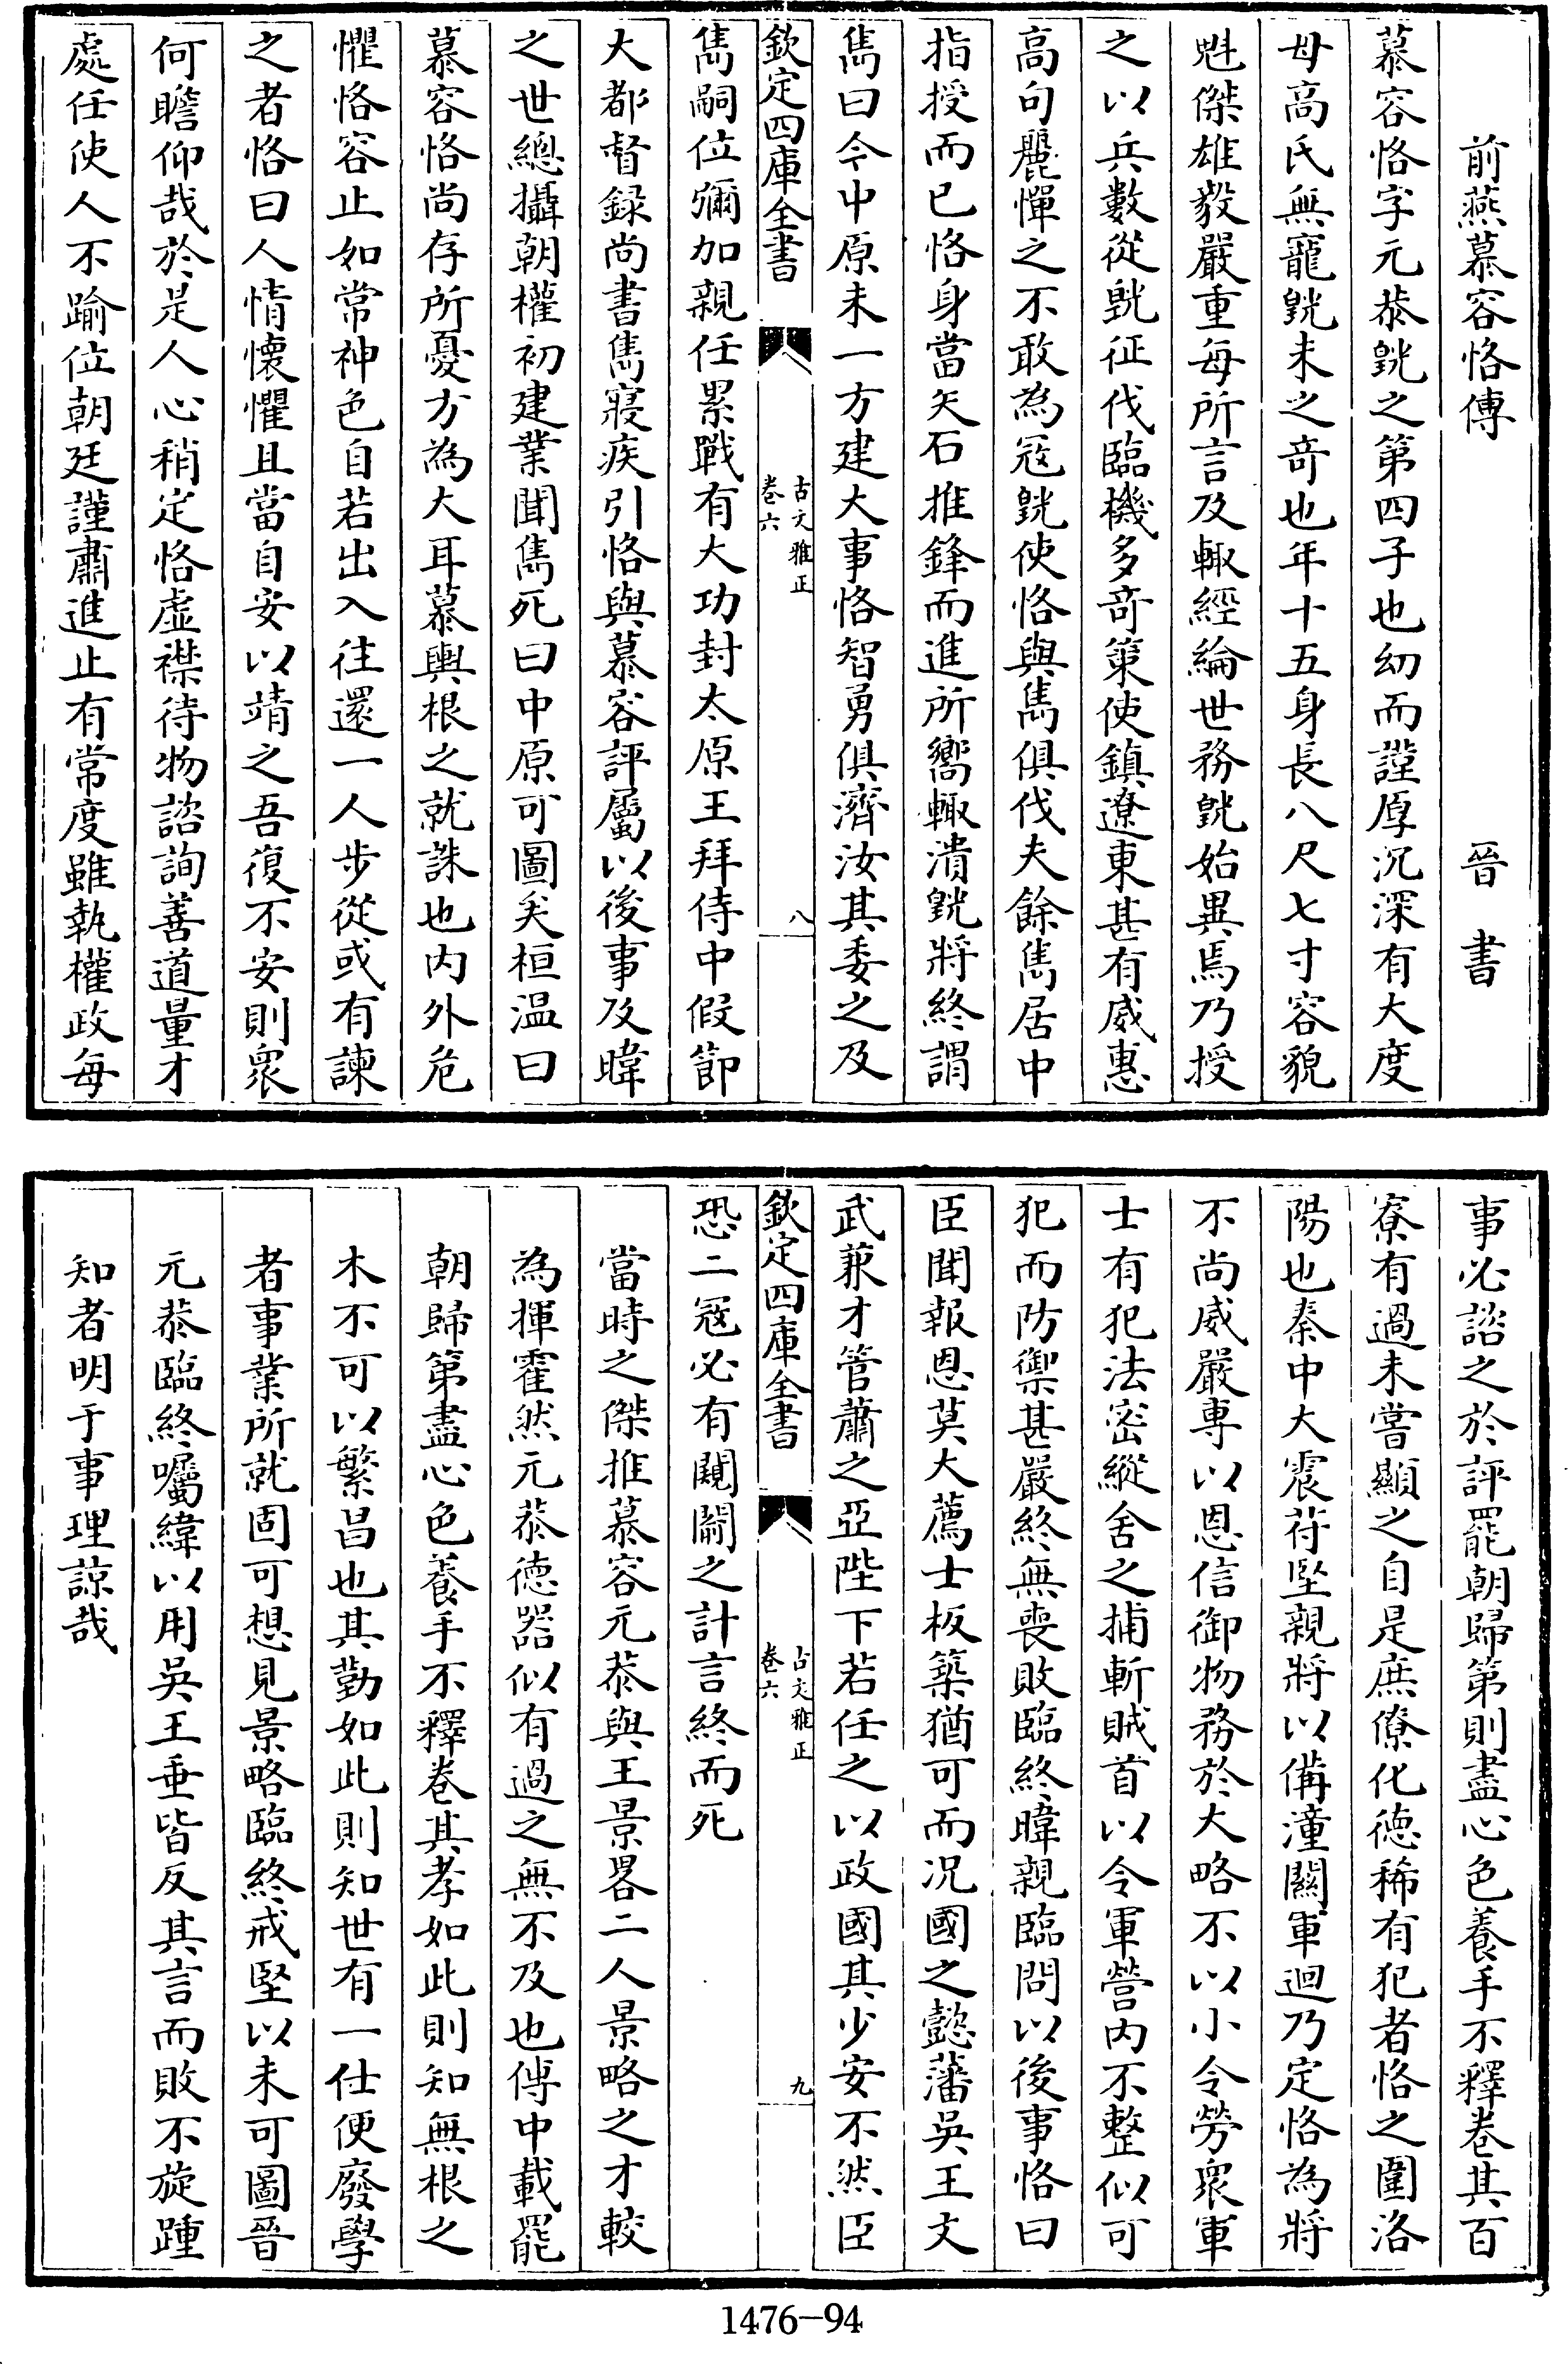 前燕慕容恪傳　晉書
慕容恪字元恭皝之第四子也幼而謹厚沉深有大度
母高氏無寵皝未之竒也年十五身長八尺七寸容貌
魁傑雄毅嚴重每所言及輙經綸世務皝始異焉乃授
之以兵數從皝征伐臨機多竒策使鎮遼東甚有威惠
高句麗憚之不敢為宼皝使恪與雋俱伐夫餘雋居中
指授而已恪身當矢石推鋒而進所嚮輙潰皝將終謂
雋曰今中原未一方建大事恪智勇俱濟汝其委之及
欽定四庫全書
古文雅正
卷六
八
雋嗣位彌加親任累戰有大功封太原王拜侍中假節
大都督録尚書雋寢疾引恪與慕容評屬以後事及暐
之世總攝朝權初建業聞雋死曰中原可圖矣桓温曰
慕容恪尚存所憂方為大耳慕輿根之就誅也内外危
懼恪容止如常神色自若出入往還一人步從或有諫
之者恪曰人情懷懼且當自安以靖之吾復不安則衆
何瞻仰哉於是人心稍定恪虚襟待物諮詢善道量才
處任使人不踰位朝廷謹肅進止有常度雖執權政每
事必諮之於評罷朝歸第則盡心色養手不釋卷其百
寮有過未嘗顯之自是庶僚化徳稀有犯者恪之圍洛
陽也秦中大震苻堅親將以備潼關軍迴乃定恪為將
不尚威嚴専以恩信御物務於大略不以小令勞衆軍
士有犯法密縱舍之捕斬賊首以令軍營内不整似可
犯而防禦甚嚴終無喪敗臨終暐親臨問以後事恪曰
臣聞報恩莫大薦士板築猶可而况國之懿藩吳王文
武兼才管蕭之亞陛下若任之以政國其少安不然臣
欽定四庫全書
古文雅正
卷六
九
恐二宼必有闚𨵦之計言終而死
當時之傑推慕容元恭與王景畧二人景略之才較
為揮霍然元恭徳器似有過之無不及也傳中載罷
朝歸第盡心色養手不釋卷其孝如此則知無根之
木不可以繁昌也其勤如此則知世有一仕便廢學
者事業所就固可想見景略臨終戒堅以未可圖晉
元恭臨終囑緯以用吳王垂皆反其言而敗不旋踵
知者明于事理諒哉
1476-94